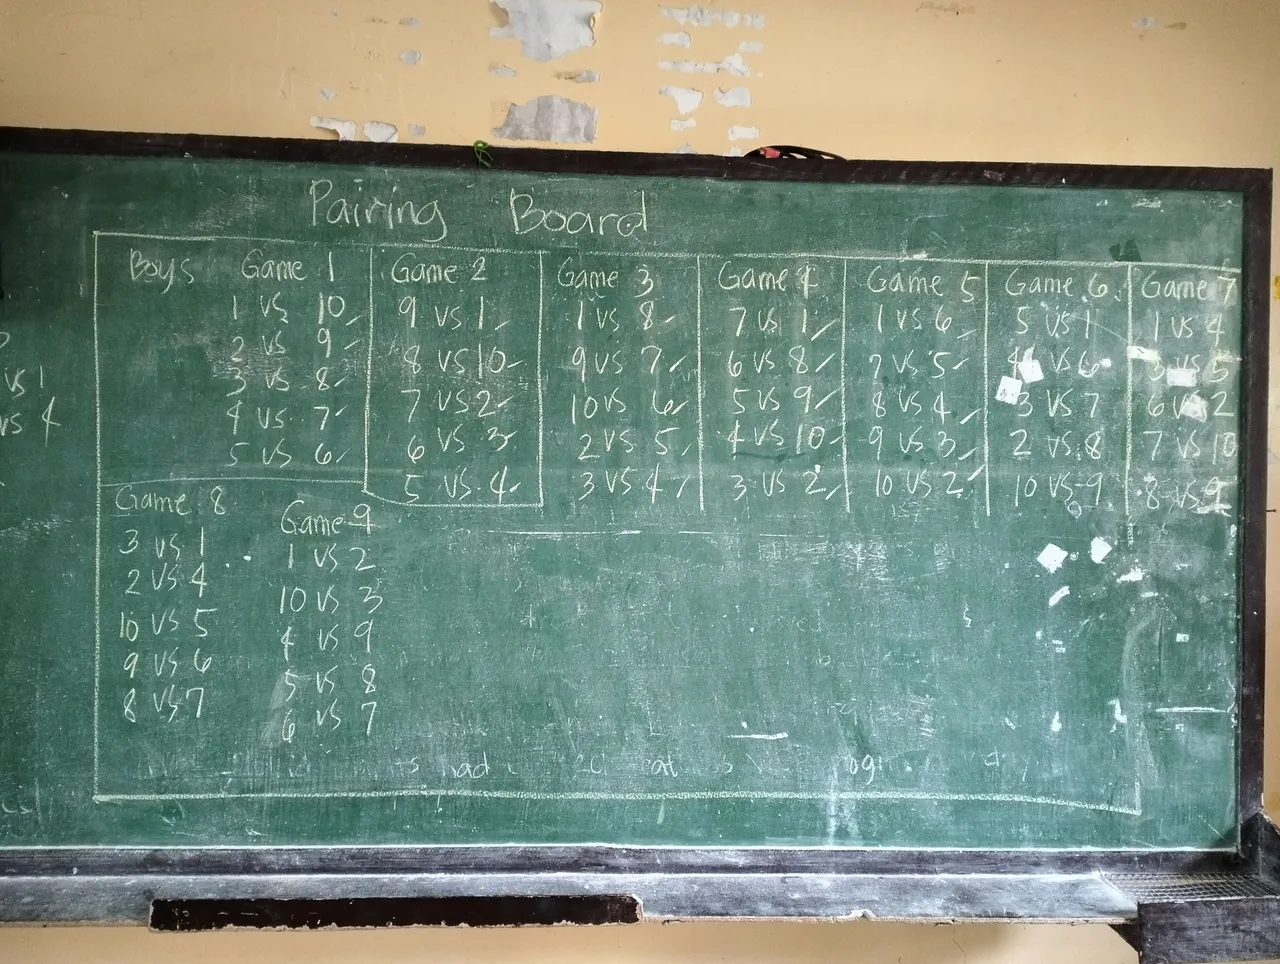 Pairing Board
Boys Game 1
1 vs 10
2 vs 9
3 vs 8
4 vs 7
5 vs 6
Game 2
9 vs 1
8 vs 10
7 vs 2
6 vs 3
5 vs 4
Game 3
1 vs 8
9 vs 7
10 vs 6
2 vs 5
3 vs 4
Game 4
7 vs 1
6 vs 8
5 vs 9
4 vs 10
3 vs 2
Game 5
1 vs 6
7 vs 5
8 vs 4
9 vs 3
10 vs 2
Game 6
5 vs 1
4 vs 6
3 vs 7
2 vs 8
10 vs 9
Game 7
1 vs 4
3 vs 5
6 vs 2
7 vs 10
8 vs 9
Game 8
3 vs 1
2 vs 4
10 vs 5
9 vs 6
8 vs 7
Game 9
1 vs 2
10 vs 3
4 vs 9
5 vs 8
6 vs 7
vs 1
vs 4